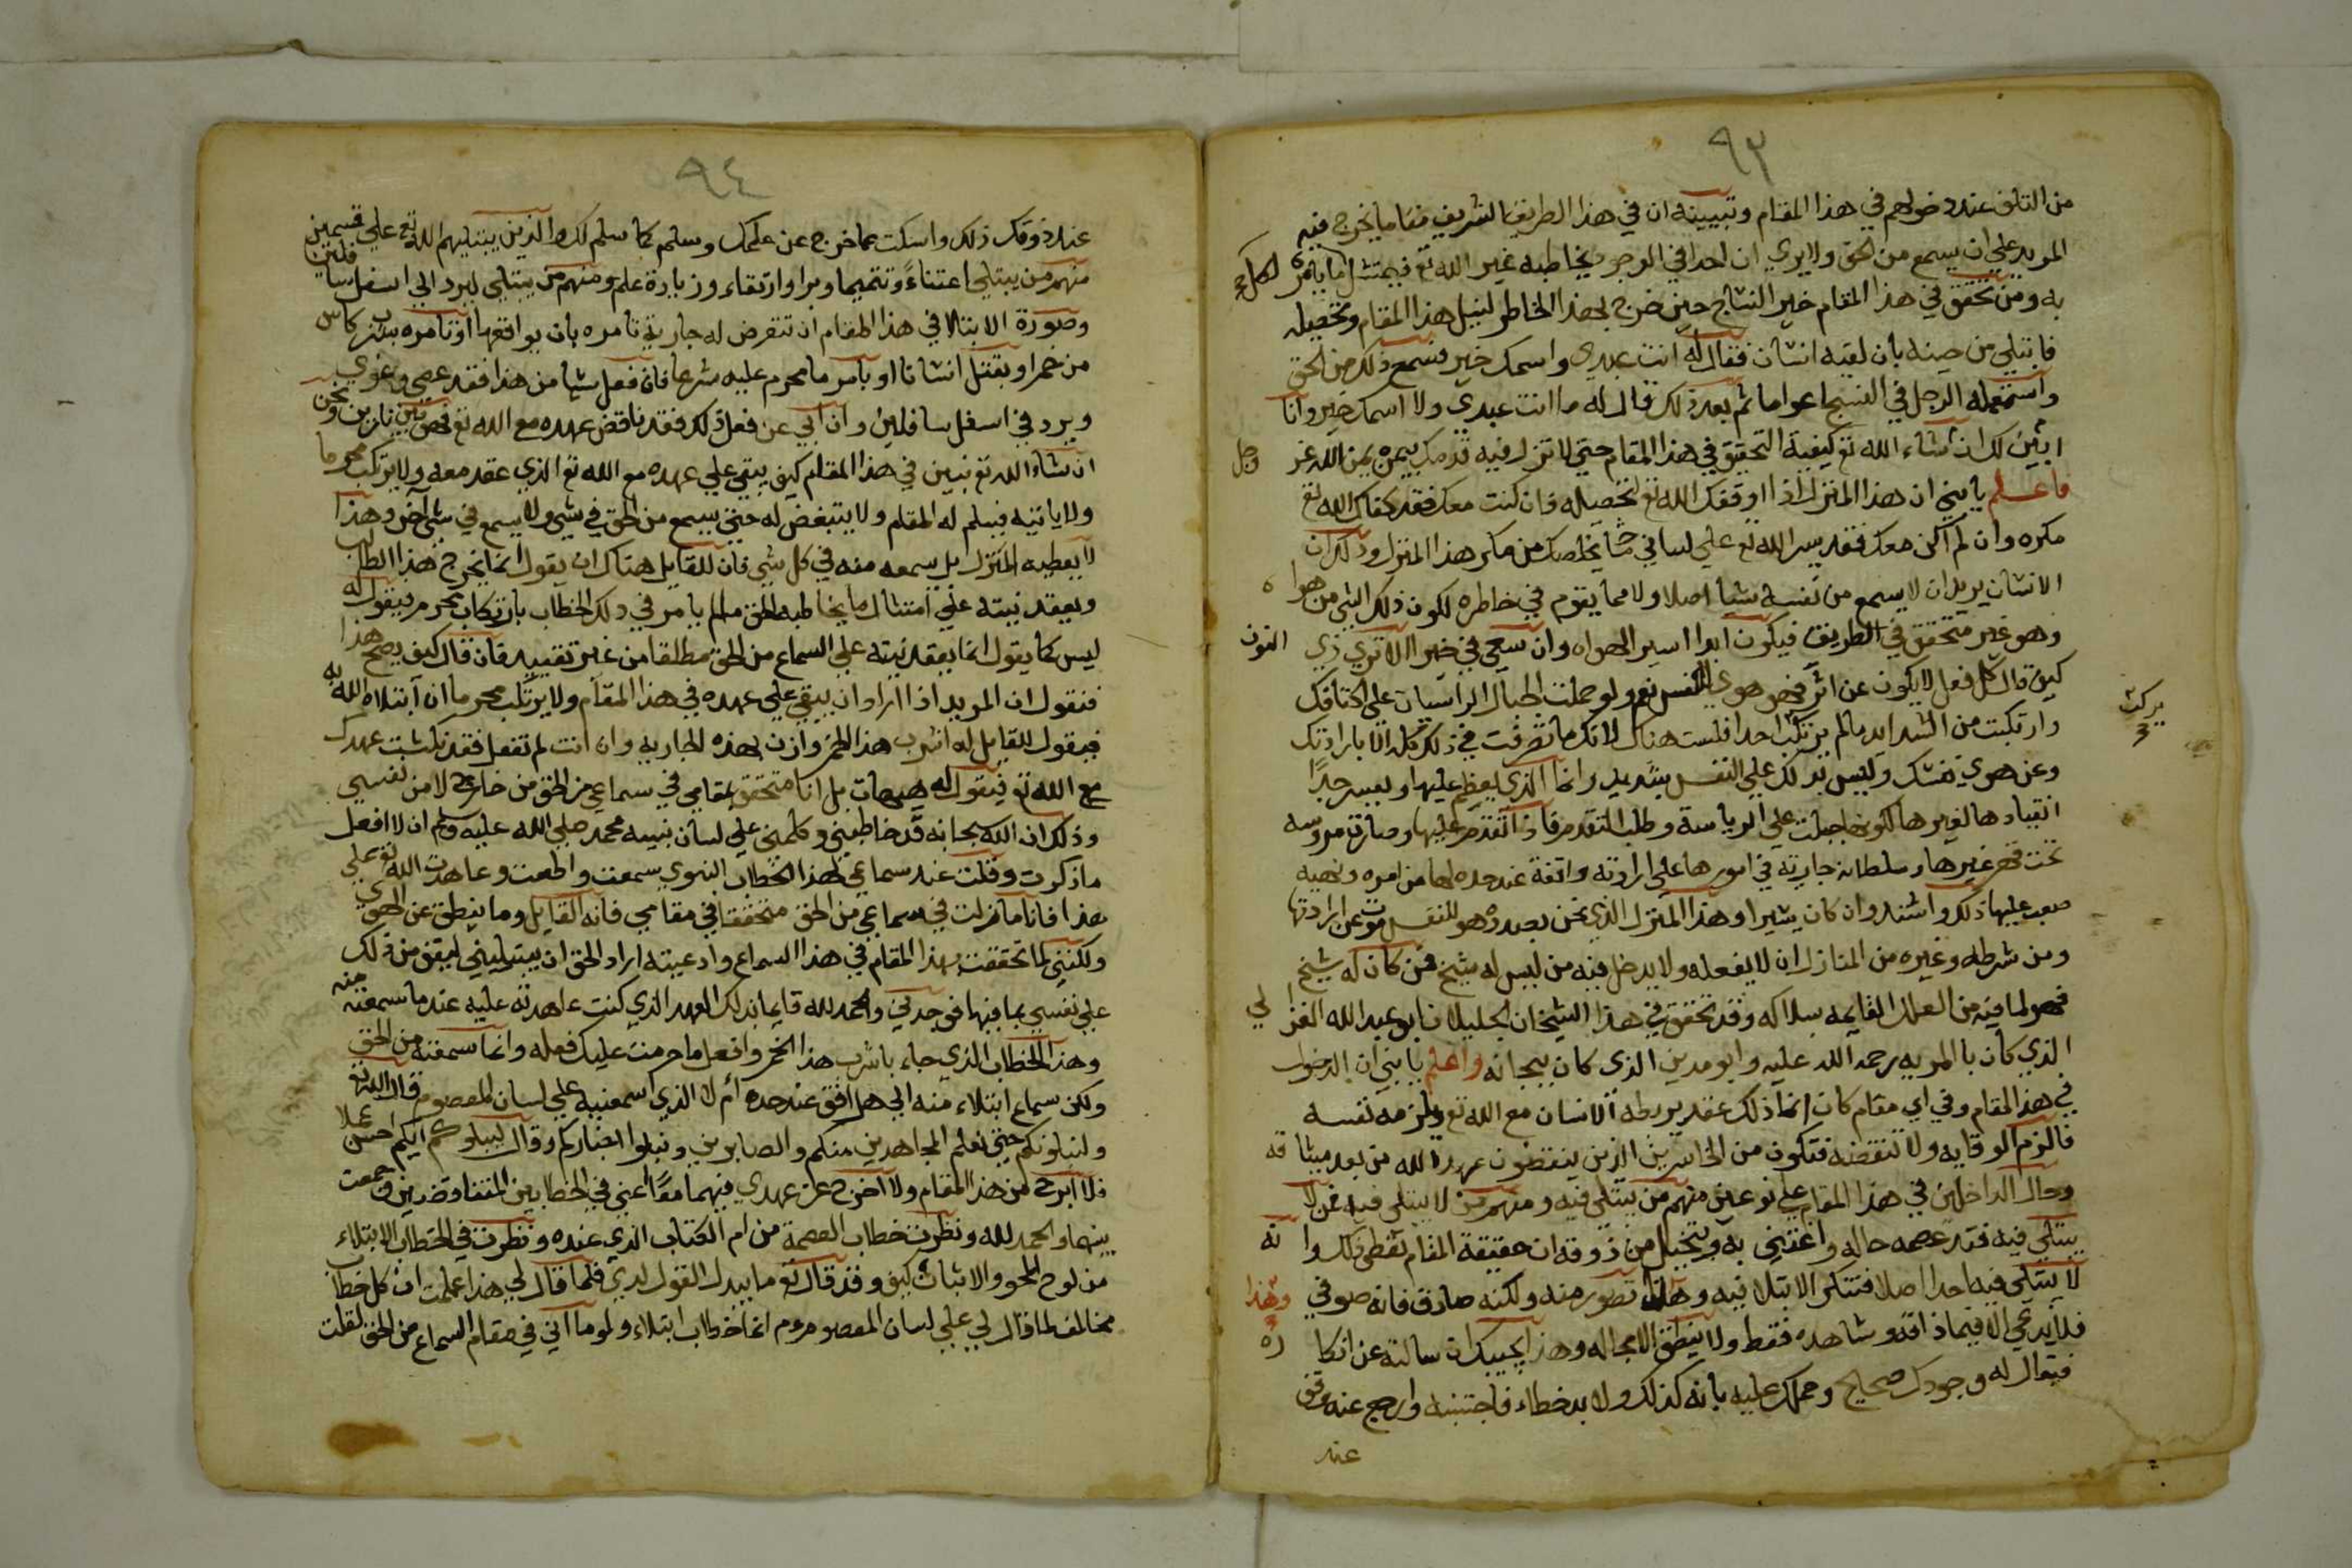 ٩٣
من التلف عند دخولهم في هذا المقام وتبيينه ان في هذا الطريق الشريف مقاما يخرج فيه
المريد علي ان يسمع من الحق ولا يري ان احدا في الوجود يخاطبه غير الله تع فيمتثل ما يامره لكل
به وممن تحقق في هذا المقام خير النساج حين خرج بهذا الخاطر لنيل هذا المقام وتحصيله
فابتلي من حينه بان لقيه انسان فقال له انت عبدي واسمك خير فسمع ذلك من الحق
واستعمله الرجل في النسج اعواما ثم بعد ذلك قال له ما انت عبدي ولا اسمك خير وانا
ابين لك ان شاء الله تع كيفية التحقق في هذا المقام حتي لا تزل فيه قدمك بيمن يمن الله عز وجل
فاعلم يا بني ان هذا المنزل اذا اوقفك الله تع لتحصيله فان كنت معك فقد كفاك الله تع
مكره وان لم اكن معك فقد يسر الله تع علي لساني ما يخلصك من مكر هذا المنزل وذلك ان
الانسان يريد ان لا يسمع من نفسه شيأ اصلا ولا مما يقوم في خاطره لكون ذلك الشي من هواه
وهو غير متحقق في الطريق فيكون ابدا اسير الهواه وان سعي في خير الا تري ذي النون
كيف قال كل فعل لا يكون عن اثر فهو هوي النفس نعم ولو حملت الجبال الراسيات علي اكتافك
وارتكبت من الشدايد مالم يرتكب احدا فلست هناك لانك ما تصرفت في ذلك كله الا بارادتك
وعن هوي نفسك وليس ذلك علي النفس بشديد وانما الذي يعظم عليها ويعسر جدا
انقيادها لغيرها لكونها جبلت علي الرياسة وطلب التقدم فاذا تقدم عليها وصارة مروسه
تحت قهر غيرها وسلطانه جارية في امورها علي ارادته واقفة عند حده لها من امره ونهيه
صعب عليها ذلك واشتد وان كان يسيرا وهذا المنزل الذي نحن بصدده هو للنفس موت عن ارادتها
ومن شرطه وغيره من المنازل ان لا يفعله ولا يدخل فيه من ليس له شيخ فمن كان له شيخ
فهو لما فيه من العلل القايمه سلاكه وقد تحقق في هذا الشيخان الجليلان ابو عبد الله الغزالي
الذي كان بالمريه رحمة الله عليه وابو مدين الذي كان ببجانه واعلم يا بني ان الدخول
في هذا المقام وفي اي مقام كان انما ذلك عقد يربطه الانسان مع الله تع ويلزمه نفسه
فالزم الوقايه ولا تنقضه فتكون من الخاسرين الذين ينقضون عهد الله من بعد ميثاقه
وحال الداخلين في هذا المقام علي نوعين منهم من يبتلي فيه ومنهم من لا يبتلي فيه فمن لا
يبتلي فيه فقد عصمه حاله واعتني به ويتخيل من ذوقه ان حقيقة المقام تعطي ذلك وانه
لا يبتلي فيه احدا اصلا فتنكر الابتلا فيه وهذا تصور منه ولكنه صادق فانه صوفي وهذا
فلا يدعي الا فيما ذاقه وشاهده فقط ولا ينطق الا بحاله وهذا يجيبك ان سالته عن انكاره
فيقال له وجودك صحيح وحملك عليه بانه كذلك ولا بد خطاء فاجتنبه وارجع عنه وقف
عند
يركب
٩٤
عند ذوقك ذلك واسكت عما خرج عن علمك وسلم كما سلم لك والذين يبتليهم الله تع علي قسمين
منهم من يبتلي اعتناءً وتتميما وبرا وارتقاء وزيادة علم ومنهم من يبتلي ليرد الي اسفل سافلين
وصورة الابتلا في هذا المقام ان تتعرض له جارية تامره بان يواقعها او تامره بشرب كاس
من خمر او بقتل انسانا او بامر ما محرم عليه شرعا فان فعل شيا من هذا فقد عصي وغوي
ويرد في اسفل سافلين وان ابي عن فعل ذلك فقد ناقض عهده مع الله تع فهو بين نارين ونحن
ان شاء الله تع نبين في هذا المقام كيف يبقي علي عهده مع الله تع الذي عقد معه ولا يرتكب محرما
ولا ياتيه فيسلم له المقام ولا يتبغض له حتي يسمع من الحق في شي ولا يسمع في شي آخر وهذا
لا يعطيه المنزل بل يسمعه منه في كل شي فان للقايل هناك ان يقول انما يخرج هذا الطالب
ويعقد نيته علي امتثال ما يخاطبه الحق ما لم يامر في ذلك الخطاب بارتكاب محرم فيقول له
ليس كما يقول انما يعقد نيته علي السماع من الحق مطلقا من غير تقييد فان قال كيف يصح هذا
فنقول ان المريد اذا اراد ان يبقي علي عهده في هذا المقام ولا يرتكب محرما ان ابتلاه الله به
فيقول القايل له اشرب هذا الخمر وازن بهذه الجاريه وان انت لم تفعل فقد نكثت عهدك
مع الله تع فيقول له هيهات بل انا متحقق بمقامي في سماعي من الحق من خارج لا من نفسي
وذلك ان الله سبحانه قد خاطبني وكلمني علي لسان نبيه محمد صلي الله عليه وسلم ان لا افعل
ما ذكرت وقلت عند سماعي لهذا الخطاب النبوي سمعت واطعت وعاهدت الله تع علي
هذا فانا ما زلت في سماعي من الحق متحققا في مقامي فانه القايل وما ينطق عن الهوي
ولكنني لما تحققت بهذا المقام في هذا السماع وادعيته اراد الحق ان يبتليني ليقف من ذلك
علي نفسي بما فيها فوجدني والحمد لله قايما بذلك العهد الذي كنت عاهدته عليه عند ما سمعته منه
وهذا الخطاب الذي جاء باشرب هذا الخمر وافعل ما حرمت عليك فعله وانما سمعته من الحق
ولكن سماع ابتلاء منه الي هل اقف عند حده ام لا الذي اسمعنيه علي لسان المعصوم قال الله تع
ولنبلونكم حتي نعلم المجاهدين منكم والصابرين ونبلوا اخباركم وقال ليبلوكم ايكم احسن عملا
فلا ابرح من هذا المقام ولا اخرج عن عهدي فيهما معًا اعني في الخطابين المتفاوضين وجمعت
بينهما والحمد لله ونظرت خطاب العصمة من ام الكتاب الذي عنده ونظرت في الخطاب الابتلاء
من لوح المحو والاثبات كيف وقد قال تع ما يبدل القول لدي فلما قال لي هذا علمت ان كل خطاب
مخالف لما قال لي علي لسان المعصوم عم انما خطاب ابتلاء ولو ما اني في مقام السماع من الحق لقلت